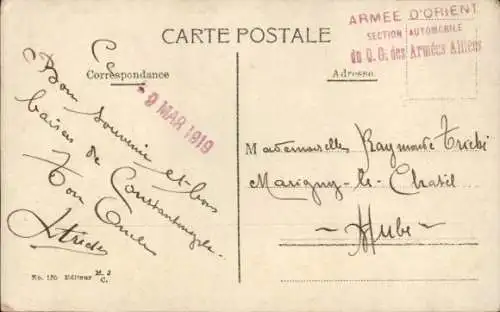 CARTE POSTALE
ARMEE D'ORIENT
SECTION AUTOMOBILE
du Q. G. des Armées Alliées
Correspondance
Adresse
9 MAR 1919
Bon souvenir et bons
baisers de Constantinople
Ton
Mademoiselle Raymonde
Marigny-le-Chatel
~ Aube ~
No. 125 Editeur M. J
C.